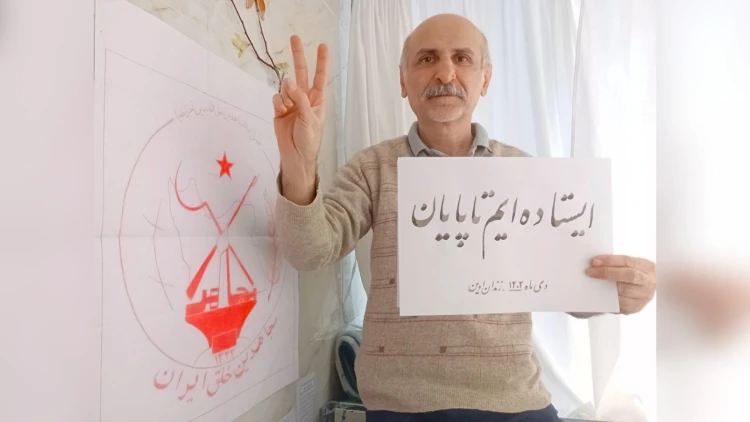 ایستاده‌ایم تا پایان
دی ماه ۱۴۰۲. زندان اوین
۱۳۴۴
مجاهدین خلق ایران